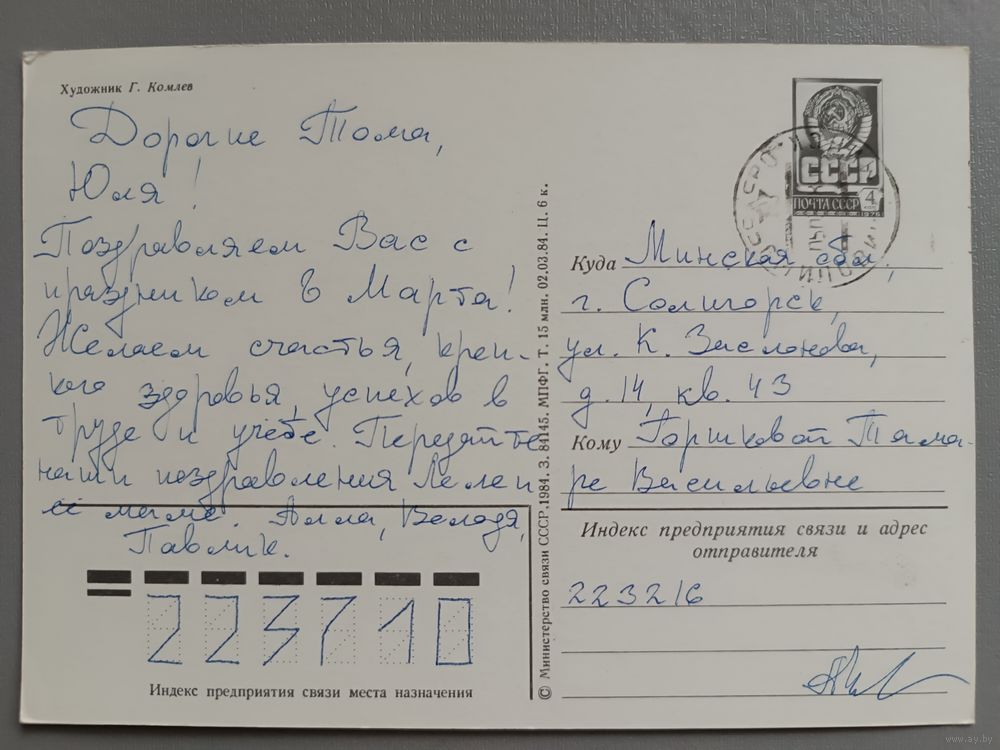 Художник Г. Комлев
Дорогие Тома,
Юля!
Поздравляем Вас с
праздником 8 Марта!
Желаем счастья, креп-
кого здоровья, успехов в
труде и учёбе. Передайте
наши поздравления Леле и
её маме. Алла, Володя,
Павлик.
223710
Индекс предприятия связи места назначения
© Министерство связи СССР. 1984. З. 84145. МПФГ. Т. 15 млн. 02.03.84. Ц. 6 к.
СССР
ПОЧТА СССР 4
1976
Куда Минская обл.,
г. Солигорск,
ул. К. Заслонова,
д. 14, кв. 43
Кому Горшковой Тама-
ре Васильевне
Индекс предприятия связи и адрес
отправителя
223216
www.ay.by